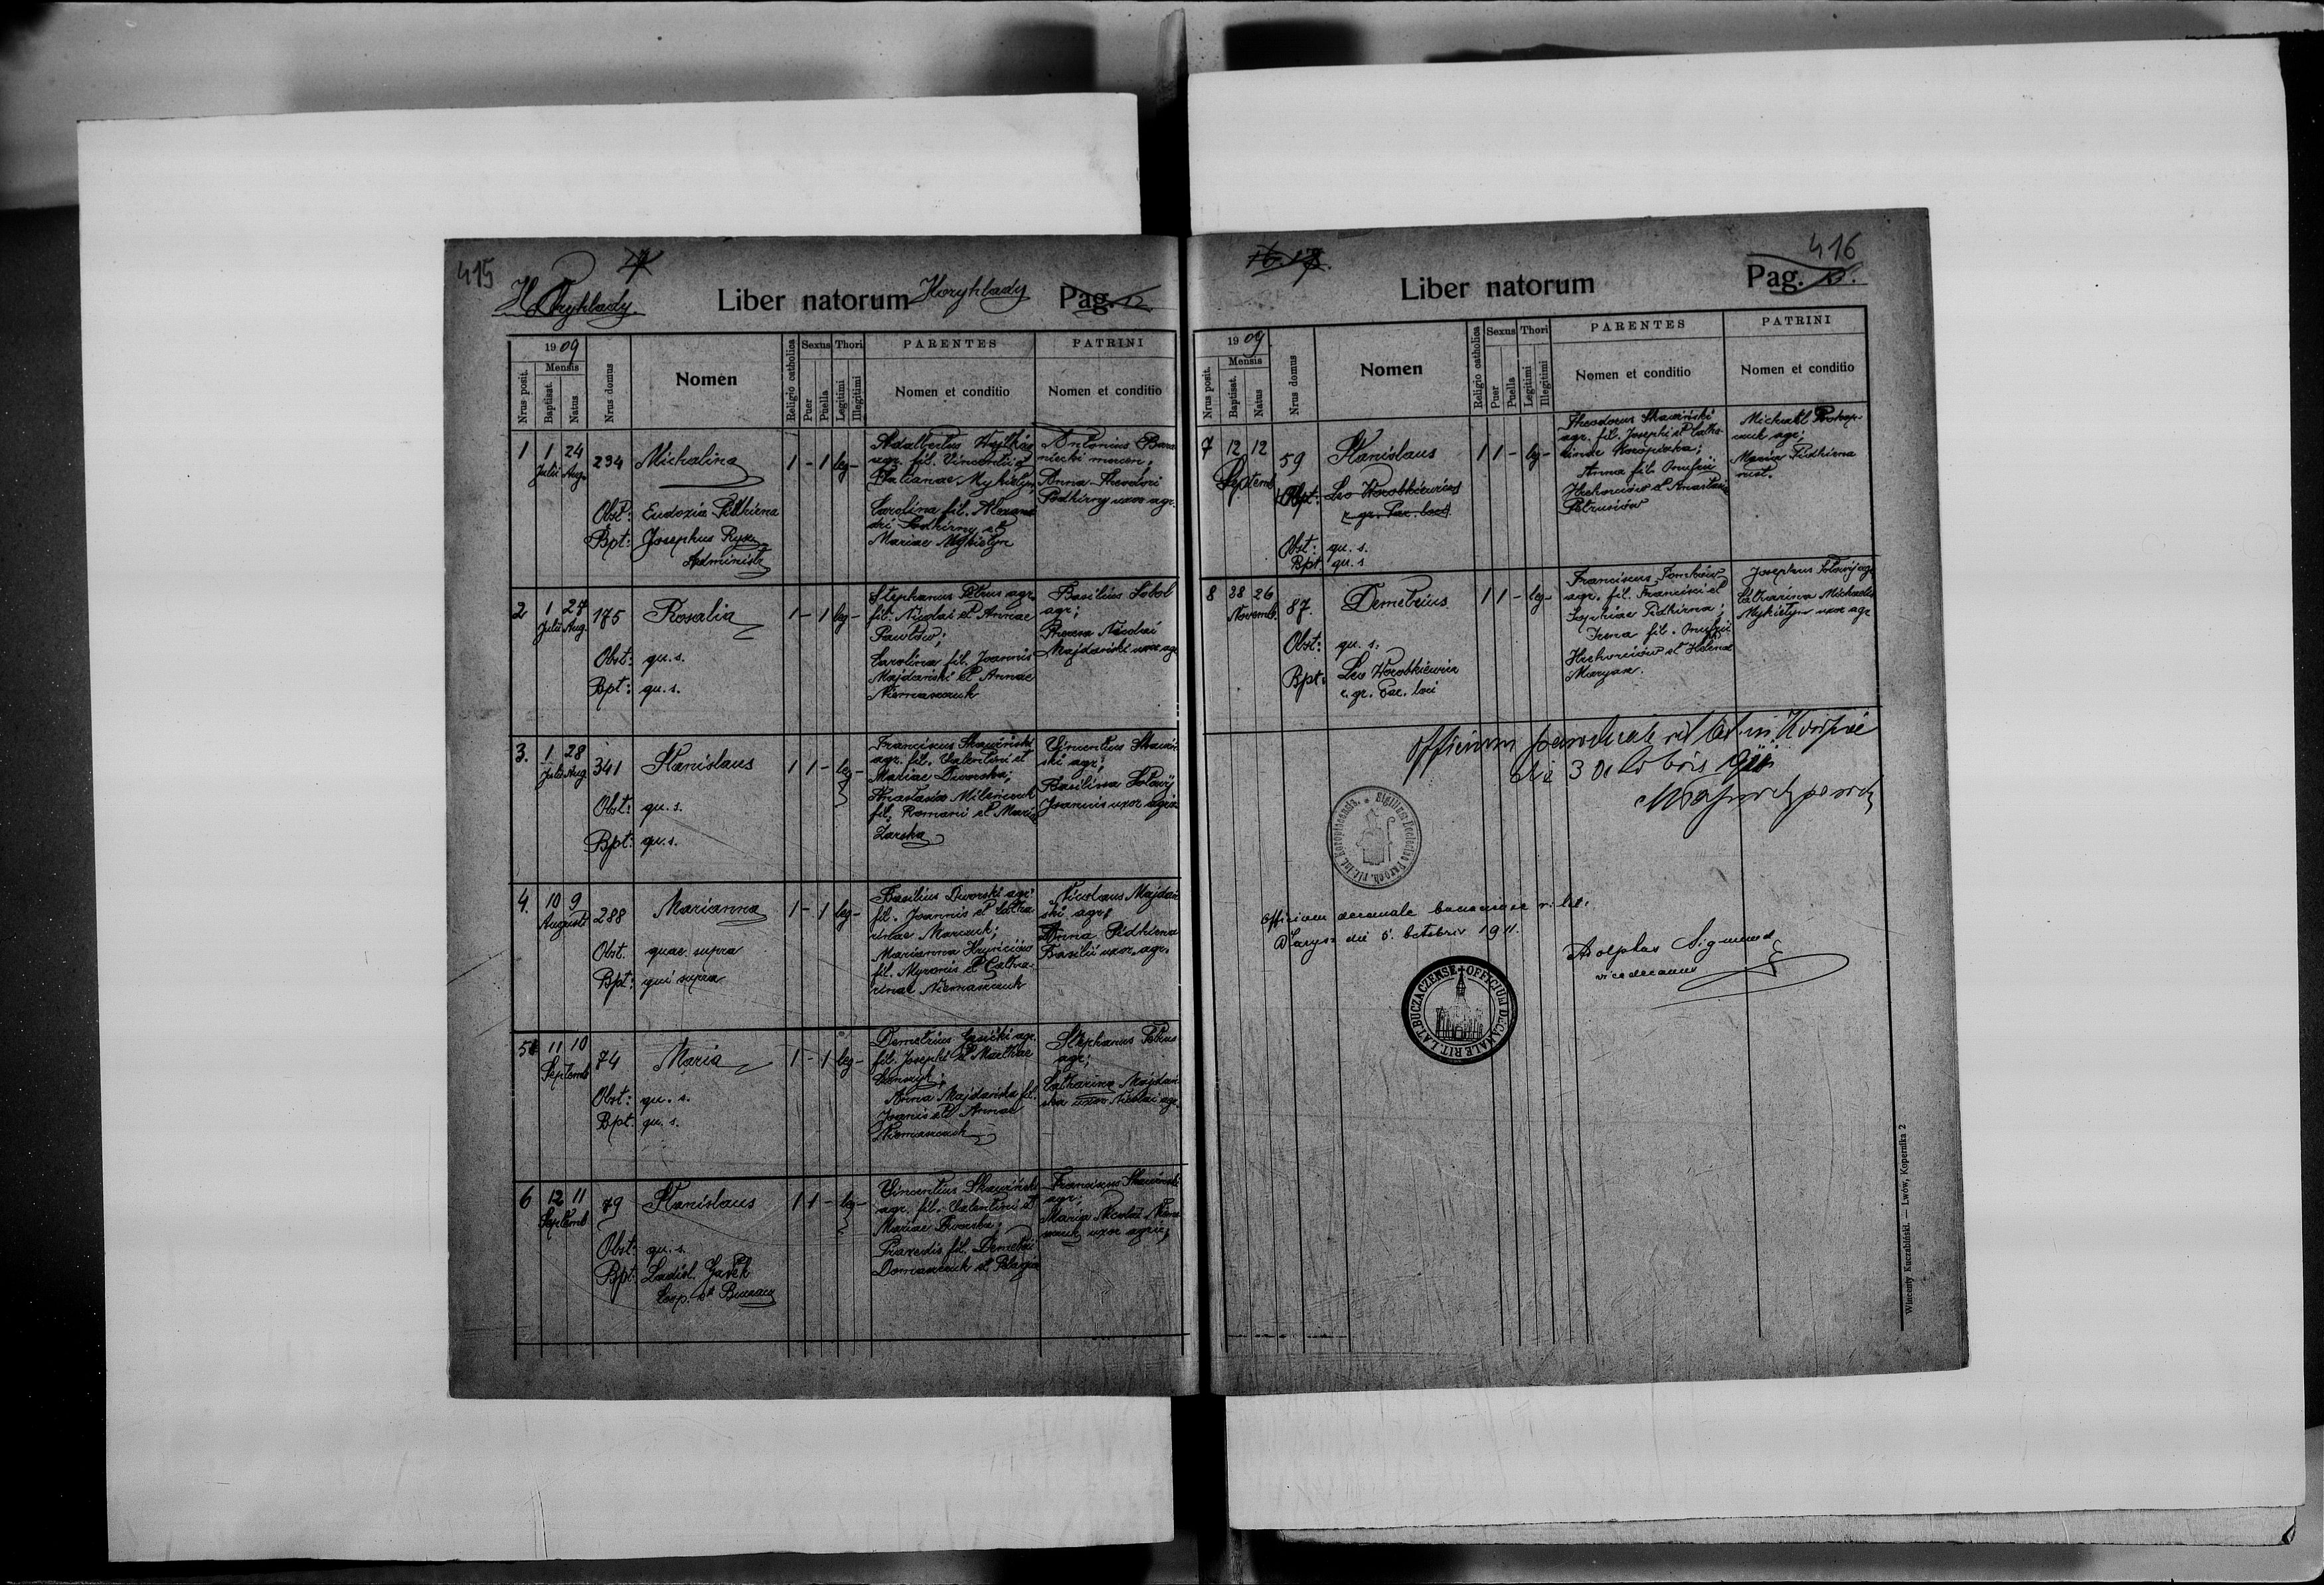 415
H Horyhlady.
Liber natorum Horyhlady Pag. 12
1909
Mensis
Nrus posit.
Baptisat.
Natus
Nrus domus
Nomen
Religio catholica
Sexus
Puer
Puella
Thori
Legitimi
Illegitimi
PARENTES
Nomen et conditio
PATRINI
Nomen et conditio
1
1 24
Julii Aug.
234
Michalina
1 - 1 leg -
Obst: Eudoxia Pidhirna
Bpt: Josephus Rysz
Administr
Adalbertus
agr. fil. Vincentii et
Julianae Mykietyn
Carolina fil. Alexan
dri Podhirny et
Mariae Mykietyn
Antonius Bara
niecki
Anna Theodori
Podhirny uxor agr.
2
1 27
Julii Aug.
175
Rosalia
1 - 1 leg -
Obst: qu. s.
Bpt: qu. s.
Stephanus Petrus agr.
fil. Nicolai et Annae
Pawlów;
Carolina fil. Joannis
Majdański et Annae
Niemaszczuk
Basilius Sobol
agr;
Nicolai
Majdański uxor agr
3.
1 28
Julii Aug
341
Stanislaus
1 1 - leg -
Obst: qu. s.
Bpt: qu. s.
Franciscus Skawiński
agr. fil. Valentini et
Mariae Dworska;
Anastasia
fil. Romani et Maria
Zarska
Vincentius Skawiń
ski agr;
Basilissa Sołowij
Joannis uxor agric
4.
10 9
Augusti
288
Marianna
1 - 1 leg -
Obst. quae supra
Bpt: qui supra
Basilius Dworski agr.
fil. Joannis et Catha
rinae Marczuk;
Marianna Hryniciów
fil. Myronis et Catha-
rinae Niemaszczuk
Nicolaus Majdań
ski agr;
Anna Pidhirna
Basilii uxor agr.
5
11 10
Septemb
74
Maria
1 - 1 leg -
Obst: qu. s.
Bpt: qu. s.
Demetrius agr.
fil. Josephi et Marthae
Anna Majdańska fil.
Joannis et Annae
Niemaszczuk
Stephanus Petrus
agr;
Catharina Majdań
ska uxor Nicolai agr.
6
12 11
Septemb
79
Stanislaus
1 1 - leg -
Obst: qu. s.
Bpt: Ladisl.
Coop. d Buczacz
Vincentius Skawiński
agr. fil. Valentini et
Mariae Dworska;
Praxedis fil. Demetrii
Domaszczuk et Pelagia
Franciscus Skawiński
agr;
Maria Nicolai
uxor agric,
416
Liber natorum
Pag.
1909.
Mensis
Nrus posit.
Baptisat.
Natus
Nrus domus
Nomen
Religio catholica
Sexus
Puer
Puella
Thori
Legitimi
Illegitimi
PARENTES
Nomen et conditio
PATRINI
Nomen et conditio
7
12 12
Septemb
59
Stanislaus
1 1 - leg -
Bpt: Leo Worobkiewicz
r. gr. Par. loci
Obst: qu. s.
Bpt qu. s
Theodorus Skawiński
agr. fil. Josephi et Catha-
rinae
Anna fil. Onufrii
Hrehorciów et Anastasia
Petrusiów
Michael Prokop-
czuk agr;
Maria Pidhirna
rust.
8
28 26
Novemb.
87.
Demetrius
1 1 - leg -
Obst: qu. s.
Bpt: Leo Worobkiewicz
r. gr. Par. loci
Franciscus
agr. fil. Francisci et
Sophiae Pidhirna;
Irena fil. Onufrii
Hrehorciów et Helena
Maryan.
Josephus Sołowij agr
Catharina Michaelis
Mykietyn uxor agr
Officium parochiale rit lat. in
die 3 Octobris 1911
Officium decanale buczacense r. lat.
die 5. octobris 1911.
Adolphus Sigmund
vicedecanus
OFFICIUM DECANALE RIT. LAT. BUCZACZENSE
Wincenty Kuczabiński. — Lwów, Kopernika 2